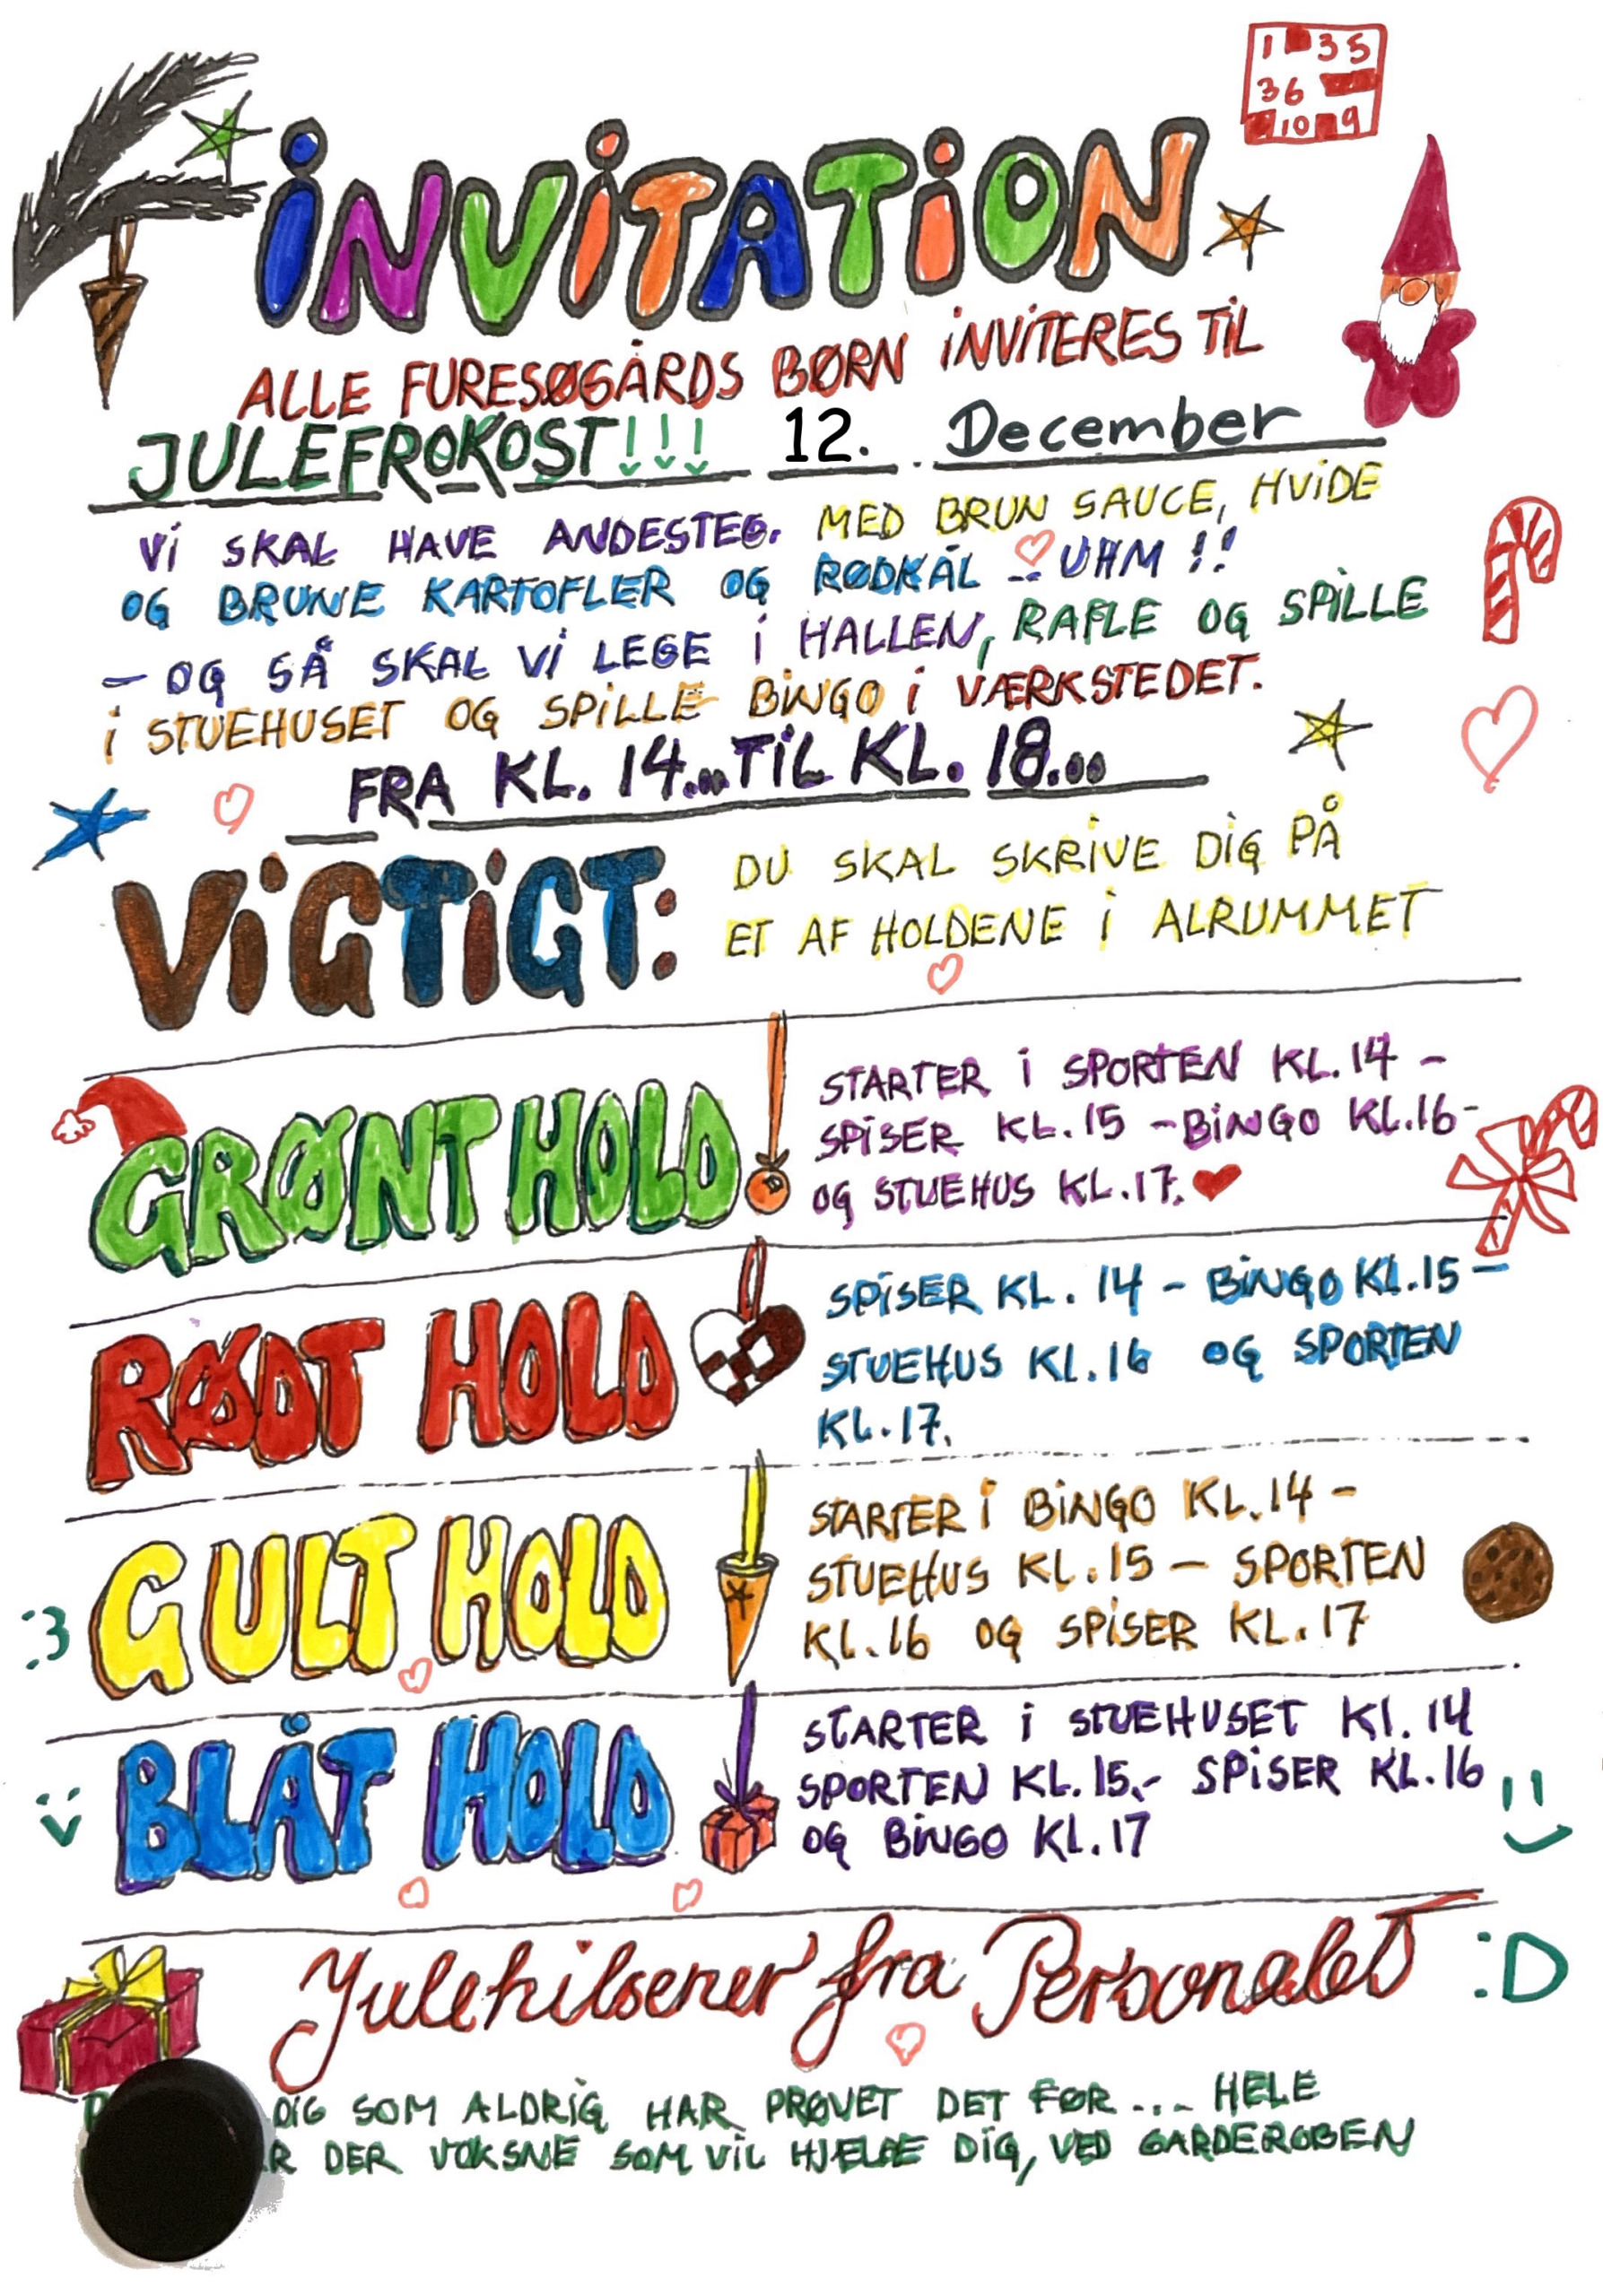 1 35
36
10 9
INVITATION
ALLE FURESØGÅRDS BØRN INVITERES TIL
JULEFROKOST!!! 12. December
VI SKAL HAVE ANDESTEG. MED BRUN SAUCE, HVIDE
OG BRUNE KARTOFLER OG RØDKÅL ... UHM !!
- OG SÅ SKAL VI LEGE I HALLEN, RAFLE OG SPILLE
I STUEHUSET OG SPILLE BINGO I VÆRKSTEDET.
FRA KL. 14... TIL KL. 18...
VIGTIGT: DU SKAL SKRIVE DIG PÅ
ET AF HOLDENE I ALRUMMET
GRØNT HOLD STARTER I SPORTEN KL.14 -
SPISER KL.15 - BINGO KL.16 -
OG STUEHUS KL.17.
RØDT HOLD SPISER KL. 14 - BINGO KL.15 -
STUEHUS KL.16 OG SPORTEN
KL.17.
GULT HOLD STARTER I BINGO KL.14 -
STUEHUS KL.15 - SPORTEN
KL.16 OG SPISER KL.17
:3
BLÅT HOLD STARTER I STUEHUSET KL.14
SPORTEN KL.15.- SPISER KL.16
OG BINGO KL.17
Julehilsener fra Personalet :D
DIG SOM ALDRIG HAR PRØVET DET FØR ... HELE
R DER VOKSNE SOM VIL HJELPE DIG, VED GARDEROBEN